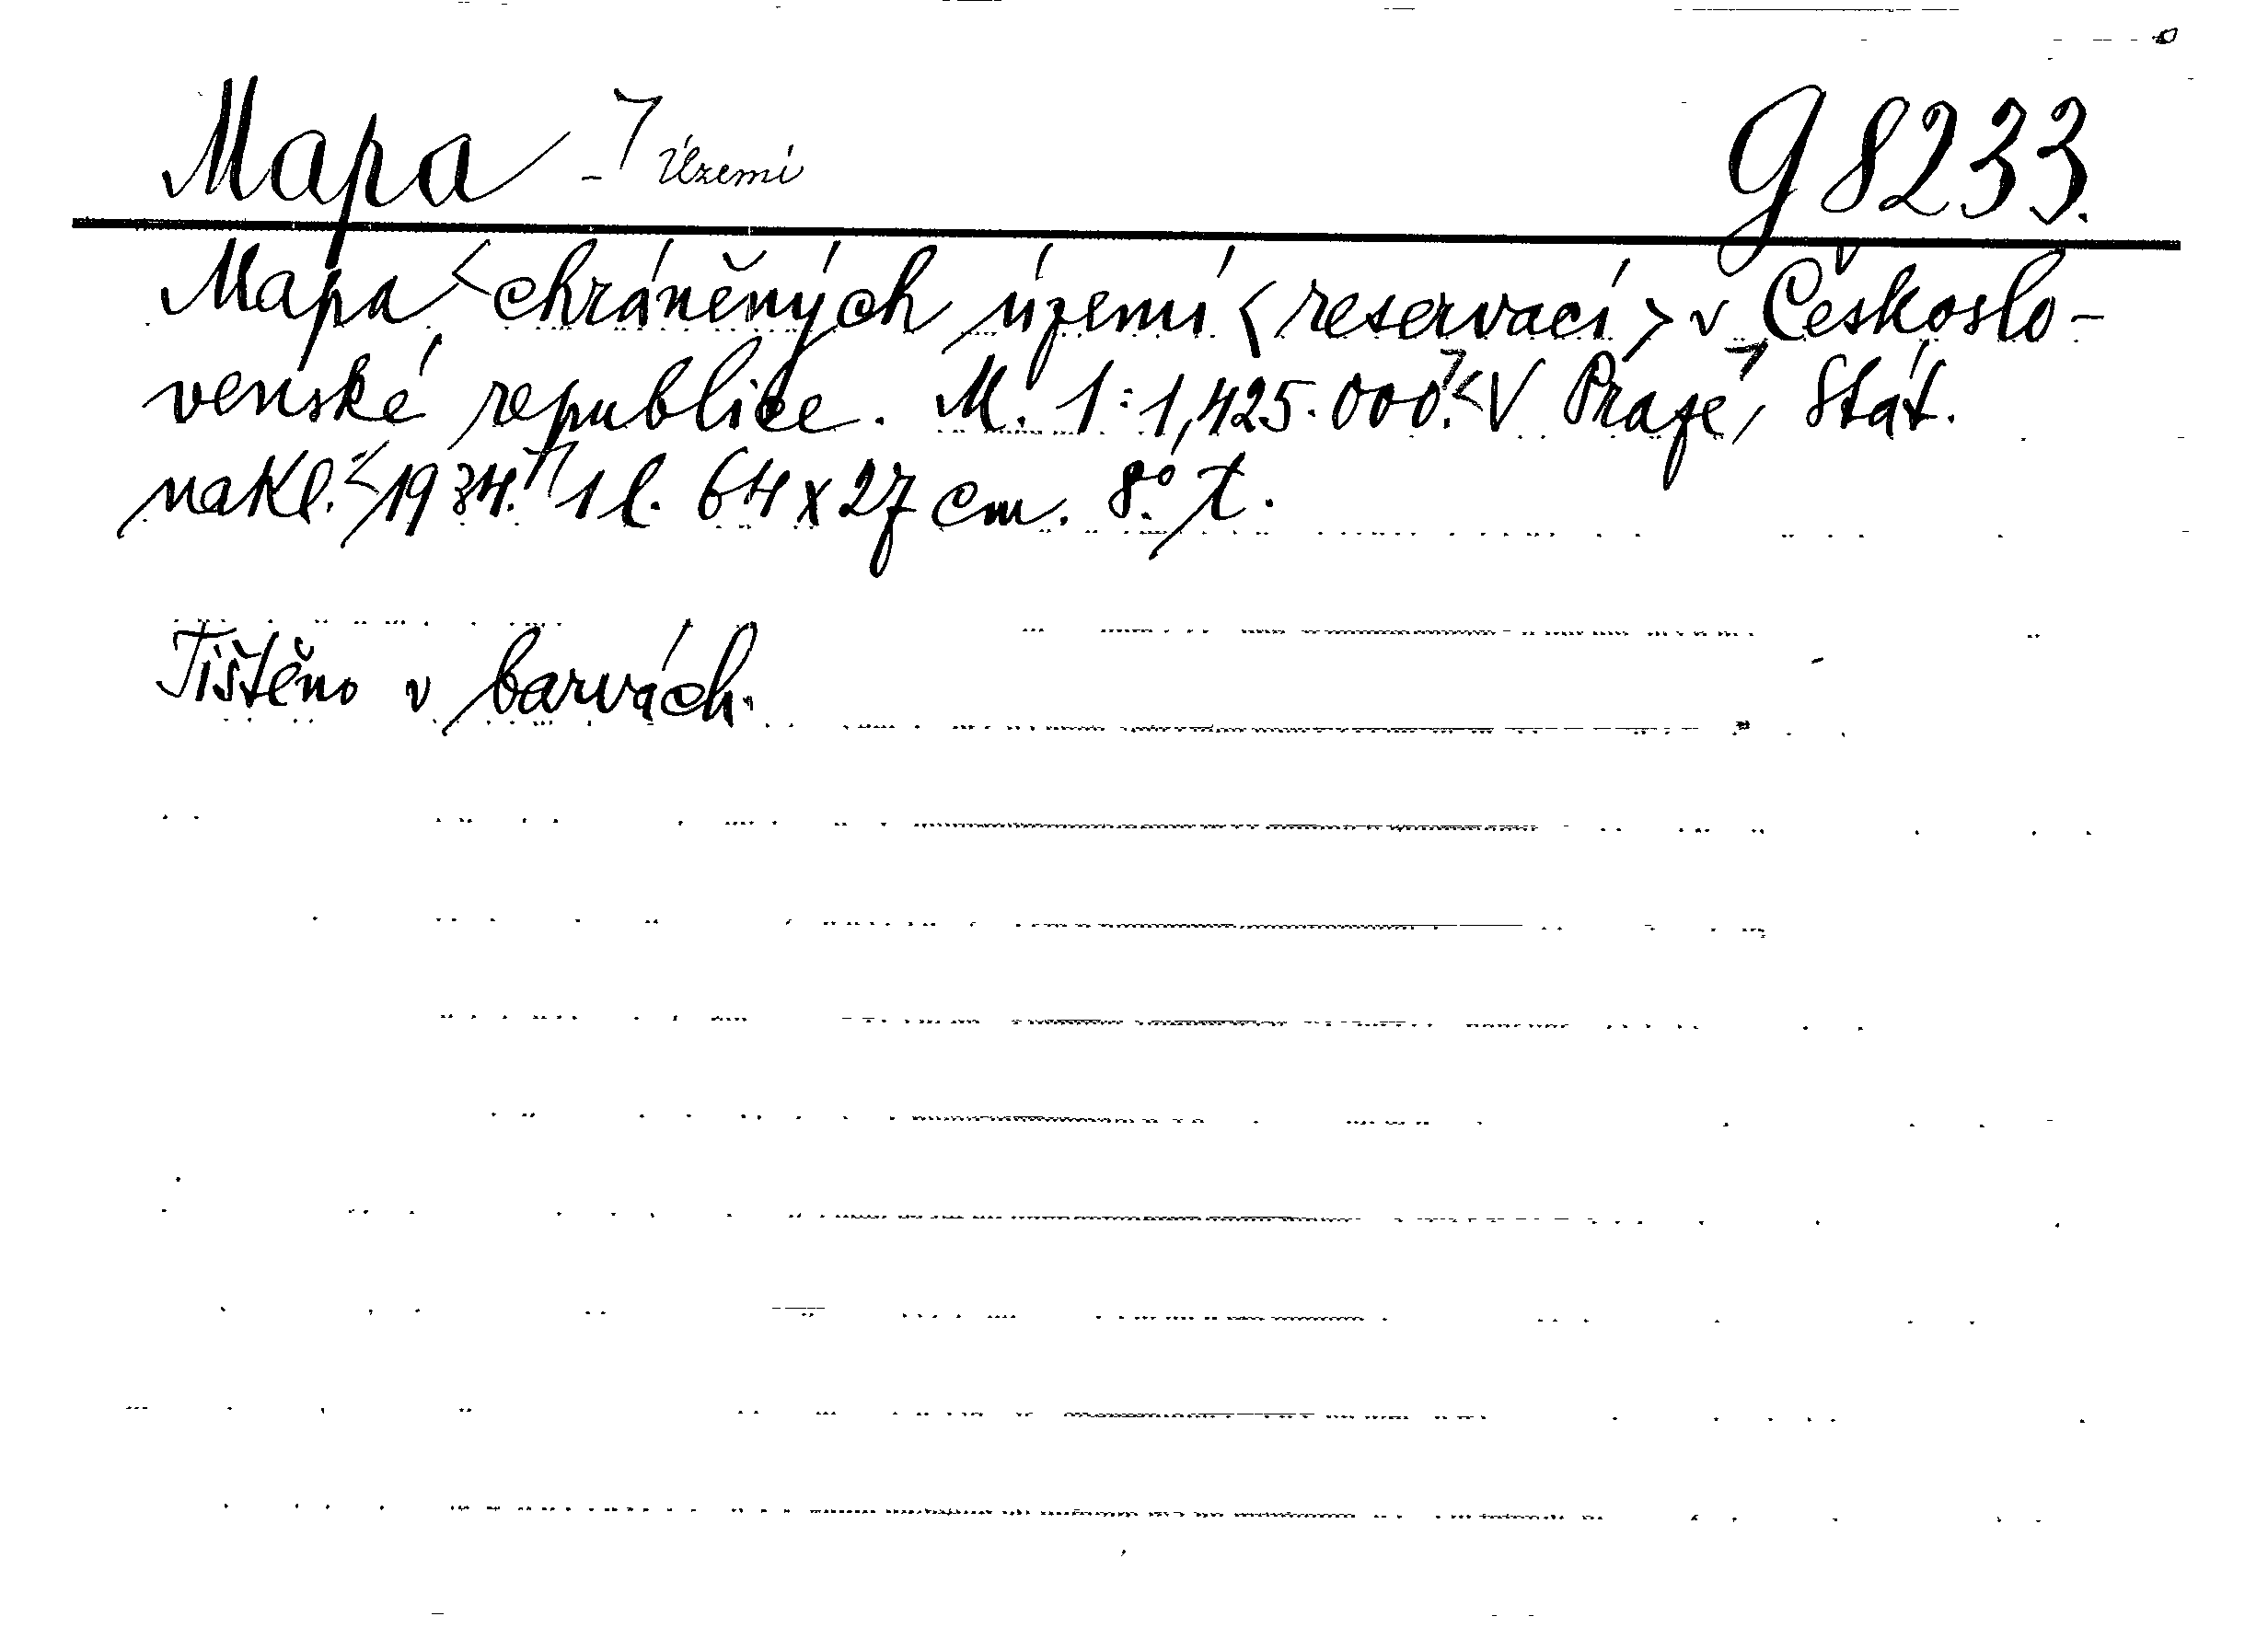 Mapa - 7 Území G 8233.
Mapa < chráněných území < reservací > v Českoslo-
venské republice. M. 1:1,425.000. < V Praze, Stát.
nakl. < 1934. 1 l. 64 x 27 cm. 8° t.
Tištěno v barvách.